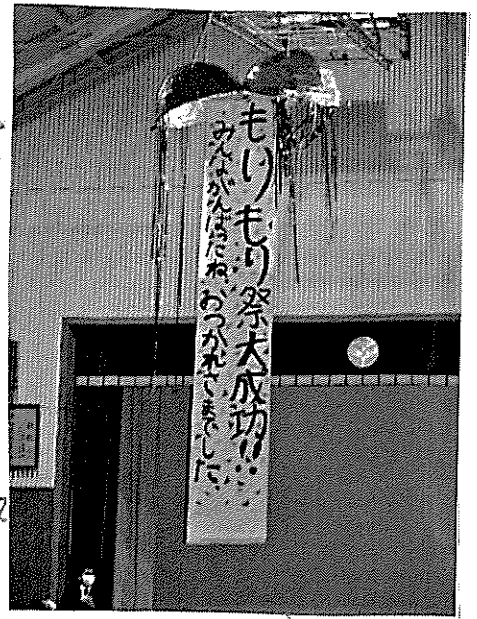 もりもり祭大成功!!
みんながんばったね。おつかれさまでした。